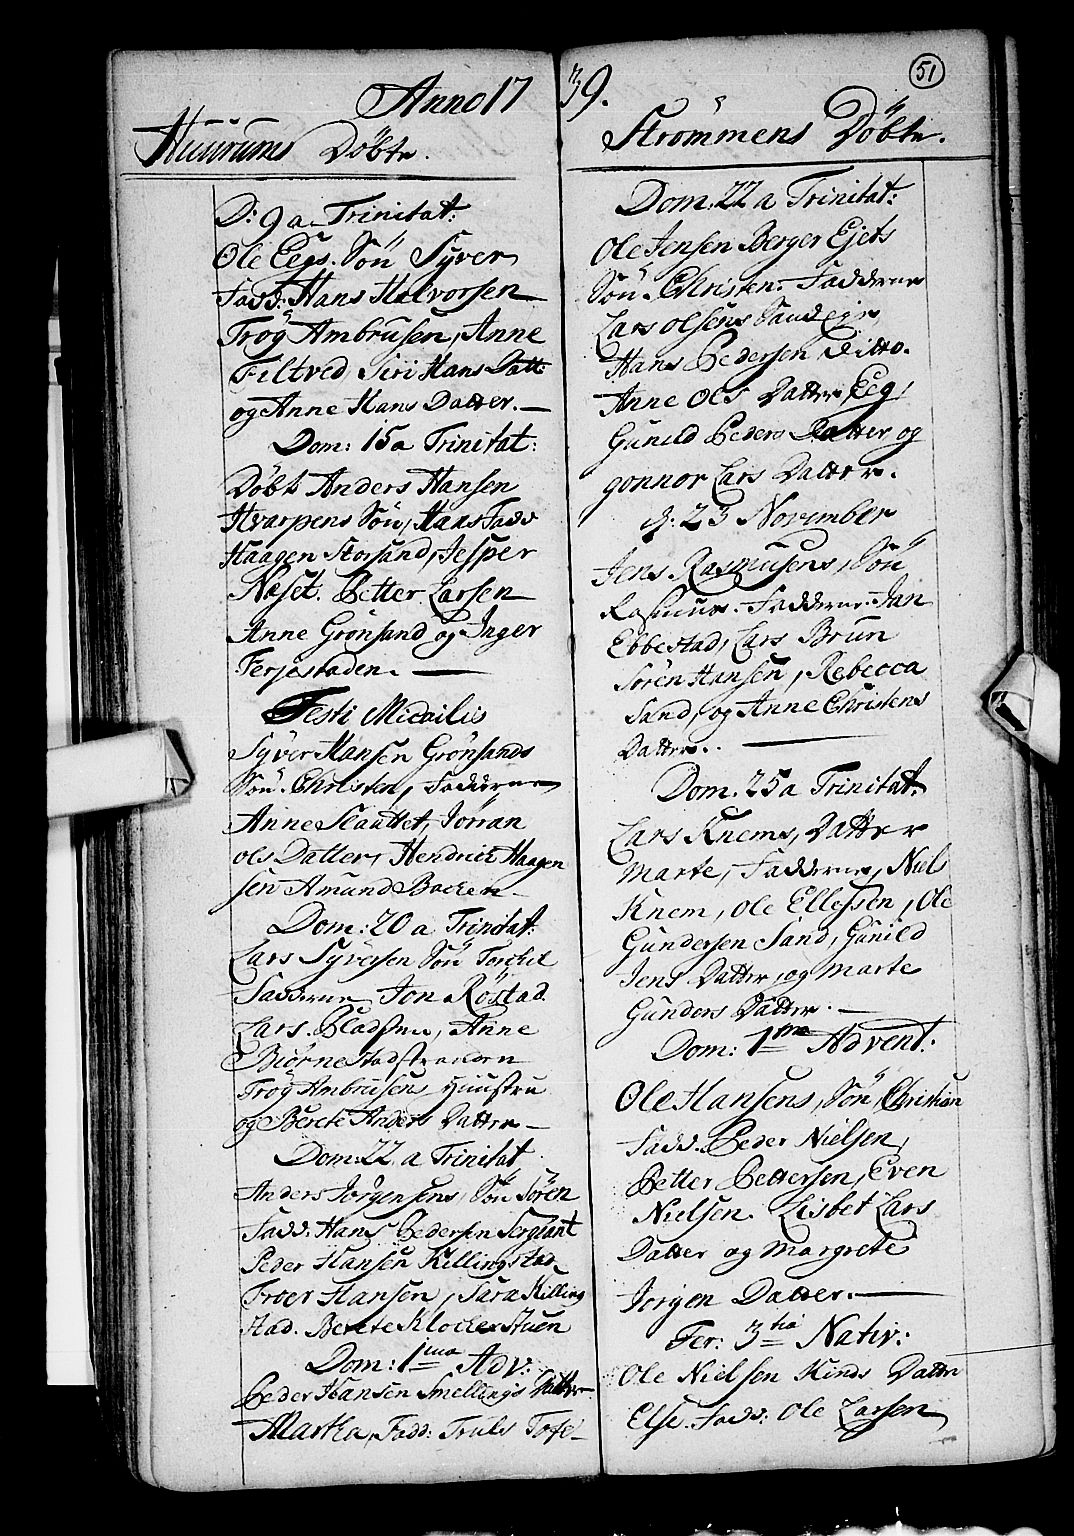 Anno 17 39.
51
Huurums Döbte.
D: 9 a Trinitat:
Ole Eegs. Sön Syver
Fadd: Hans Halvorsen
Trög Ambrusen, Anne
Filtved, Siri Hans Datt:
og Anne Hans Datter.
Dom: 15 a Trinitat:
Döbt Anders Hansen
Hvarpens Sön, Hans Fadd
Haagen Storsand, Jesper
Næset. Petter Larsen
Anne Grönsand og Inger
Ferjestaden.
Festi Micailis
Syver Hansen Grönsands
Sön. Christen, Fadderne
Anne Slaattet, Jörran
ols Datter, Hendrich Haagen
sen Amund Backen
Dom: 20 a Trinitat:
Lars Syversen Sön Torchil
Fadderne Jon Röstad
Lars Anne
Biörnestadstranden
Trög Ambrusens Huustru
og Berete Anders Datter
Dom: 22 a Trinitat
Anders Jörgensens Sön Sören
Fadd: Hans Pedersen Sergiant
Peder Hansen Killingstad
Froer Hansen, Sara Killing
stad. Berete Klocherstuen
Dom: 1ma Adv:
Peder Hansen Smellings Datter
Martha, Fadd: Truls Tofe
Strömmens Döbte.
Dom. 22 a Trinitat:
Ole Jensen Berger Ejets
Sön. Christen. Fadderne
Lars olsens Sand eje,
Hans Pedersen ditto.
Anne Ols Datter Eeg,
Gunild Peders Datter og
gonnor Lars Datter.
d: 23 November
Jens Rasmusens, Sön
Rasmus. Fadderne. Jan
Ebbestad, Lars Brun
Sören Hansen, Rebecca
Sand, og Anne Christens
Datter.
Dom. 25 a Trinitat:
Lars Knems, Datter
Marte, Fadderne, Niels
Knem, Ole Ellefsen, Ole
Gundersen Sand, Gunild
Jens Datter, og Marte
Gunders Datter.
Dom: 1ma Advent.
Ole Hansens, Sön, Christian
Fadd. Peder Nielsen,
Petter Pettersen, Even
Nielsen. Lisbet Lars
Datter og Margrete
Jörgen Datter.
Fer: 3tia Nativ:
Ole Nielsen Kinds Datter
Else. Fadd: Ole Larsen